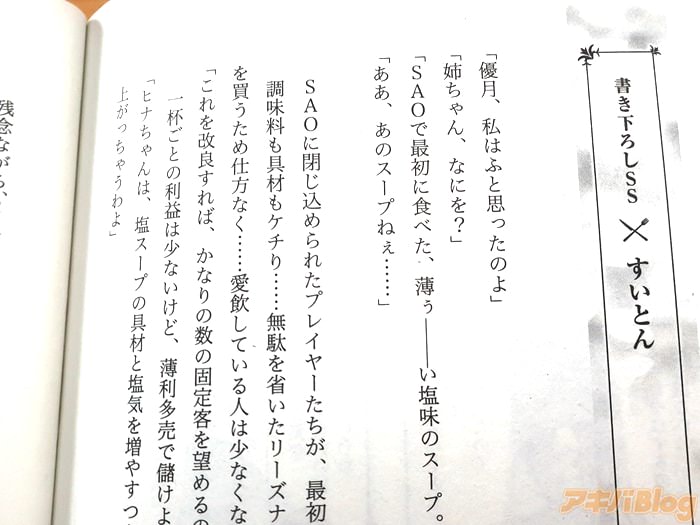 書き下ろしSS すいとん
「優月、私はふと思ったのよ」
「姉ちゃん、なにを?」
「SAOで最初に食べた、薄ぅ――い塩味のスープ。
「ああ、あのスープねぇ……」
SAOに閉じ込められたプレイヤーたちが、最初
調味料も具材もケチり……無駄を省いたリーズナ
を買うため仕方なく……愛飲している人は少なくな
「これを改良すれば、かなりの数の固定客を望めるの
一杯ごとの利益は少ないけど、薄利多売で儲けよ
「ヒナちゃんは、塩スープの具材と塩気を増やすつ
上がっちゃうわよ」
残念ながら、
アキバBlog